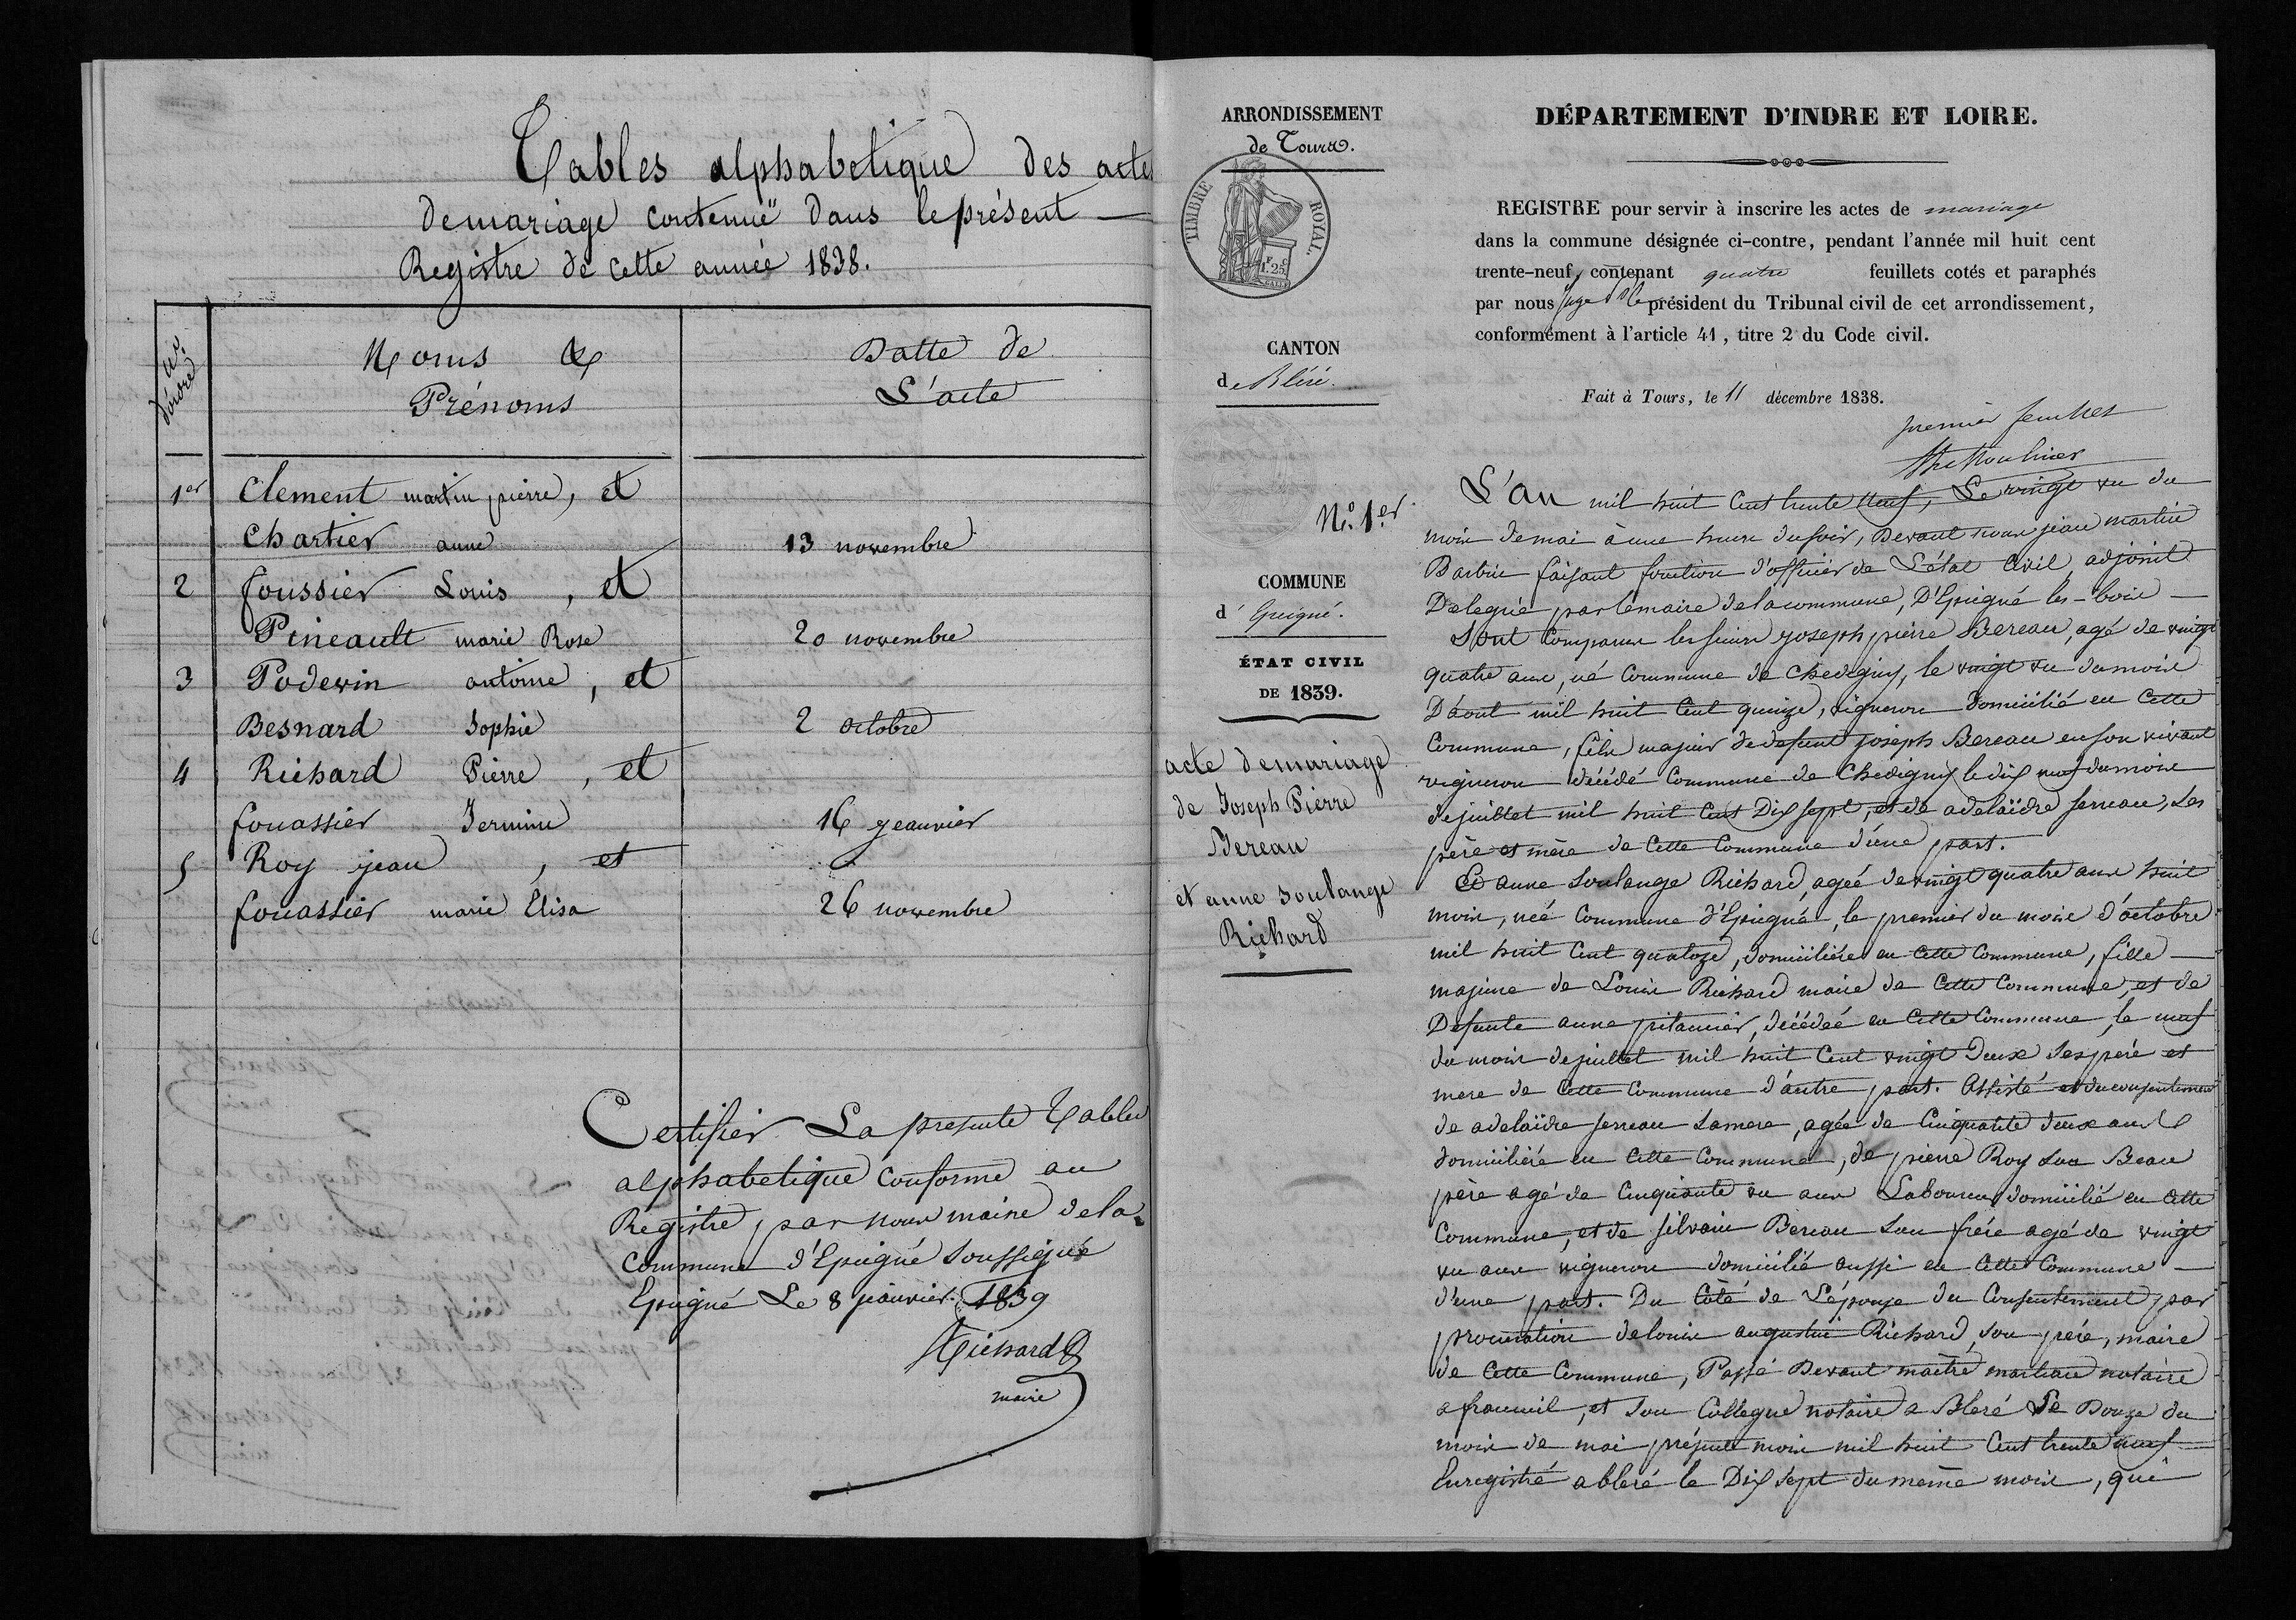 Tables alphabetique des actes
de mariage contenuë dans le présent
Registre de cette année 1838.
Nos d'ordre
Noms &
Prénoms
Datte de
L'acte
1er Clement martin pierre, et
Chartier anne 13 novembre
2 foussier Louis, et
Pineault marie Rose 20 novembre
3 Podevin antoine, et
Besnard Sophie 2 octobre
4 Richard Pierre, et
fouassier Jermine 16 jeanvier
5 Roy jean, et
fouassier marie Elisa 26 novembre
Certifier La presente Tables
alphabetique Conforme au
Registre, par nous maire de la
Commune d'Epeigné Soussigné
Epeigné Le 8 janvier 1839
Richard
maire
ARRONDISSEMENT
de Tours.
TIMBRE ROYAL
F. C.
1.25
CANTON
de Bléré.
No. 1er
COMMUNE
d'Epeigné.
ÉTAT CIVIL
DE 1839.
acte de mariage
de Joseph Pierre
Bereau
et anne Soulange
Richard
DÉPARTEMENT D'INDRE ET LOIRE.
REGISTRE pour servir à inscrire les actes de mariage
dans la commune désignée ci-contre, pendant l'année mil huit cent
trente-neuf, contenant quatre feuillets cotés et paraphés
par nous juge pr le président du Tribunal civil de cet arrondissement,
conformément à l'article 41, titre 2 du Code civil.
Fait à Tours, le 11 décembre 1838.
premier feuillet
L'an mil huit Cent trente neuf, Le vingt un du
mois de mai à une heure du soir, Devant nous jean martin
Barbin faisant fonction d'officier de L'état Civil adjoint
Delegué par le maire de la commune, D'Epeigné les-bois
Sont Comparus les sieurs joseph pierre Bereau, agé de vingt
quatre ans, né Commune de Chedigny, le vingt un du mois
D'août mil huit Cent quinze, vigneron domicilié en Cette
Commune, fils majeur de defunt joseph Bereau en son vivant
vigneron décédé Commune de Chedigny le dix neuf du mois
de juillet mil huit Cent Dix sept, et de adelaïdre serreau, Ses
père et mère de Cette Commune d'une part.
Et anne Soulange Richard, agée de vingt quatre ans huit
mois, née Commune d'Epeigné, le premier du mois d'octobre
mil huit Cent quatoze, domiciliée en Cette Commune, fille
majeure de Louis Richard maire de Cette Commune, et de
Defunte anne pitancier, décédée en Cette Commune, le neuf
du mois de juillet mil huit Cent vingt Deux ses père et
mere de Cette Commune d'autre part. Assisté et du consentement
de adelaïdre serreau Sa mere, agée de Cinquante deux ans
domiciliée en Cette Commune, de pierre Roy Son Beau
père agé de Cinquante un ans Laboureur domicilié en Cette
Commune, et de silvain Bereau Son frère agé de vingt
un ans vigneron domicilié aussi en Cette Commune
d'une part. Du Côté de L'épouse du Consentement par
procuration de louis augustin Richard, son père, maire
de Cette Commune, Passé Devant maître marteau notaire
a francueil, et Son Collegue notaire a Bleré Le Douze du
mois de mai présent mois mil huit Cent trente neuf
Enregistré a bleré le Dix Sept du même mois, qui